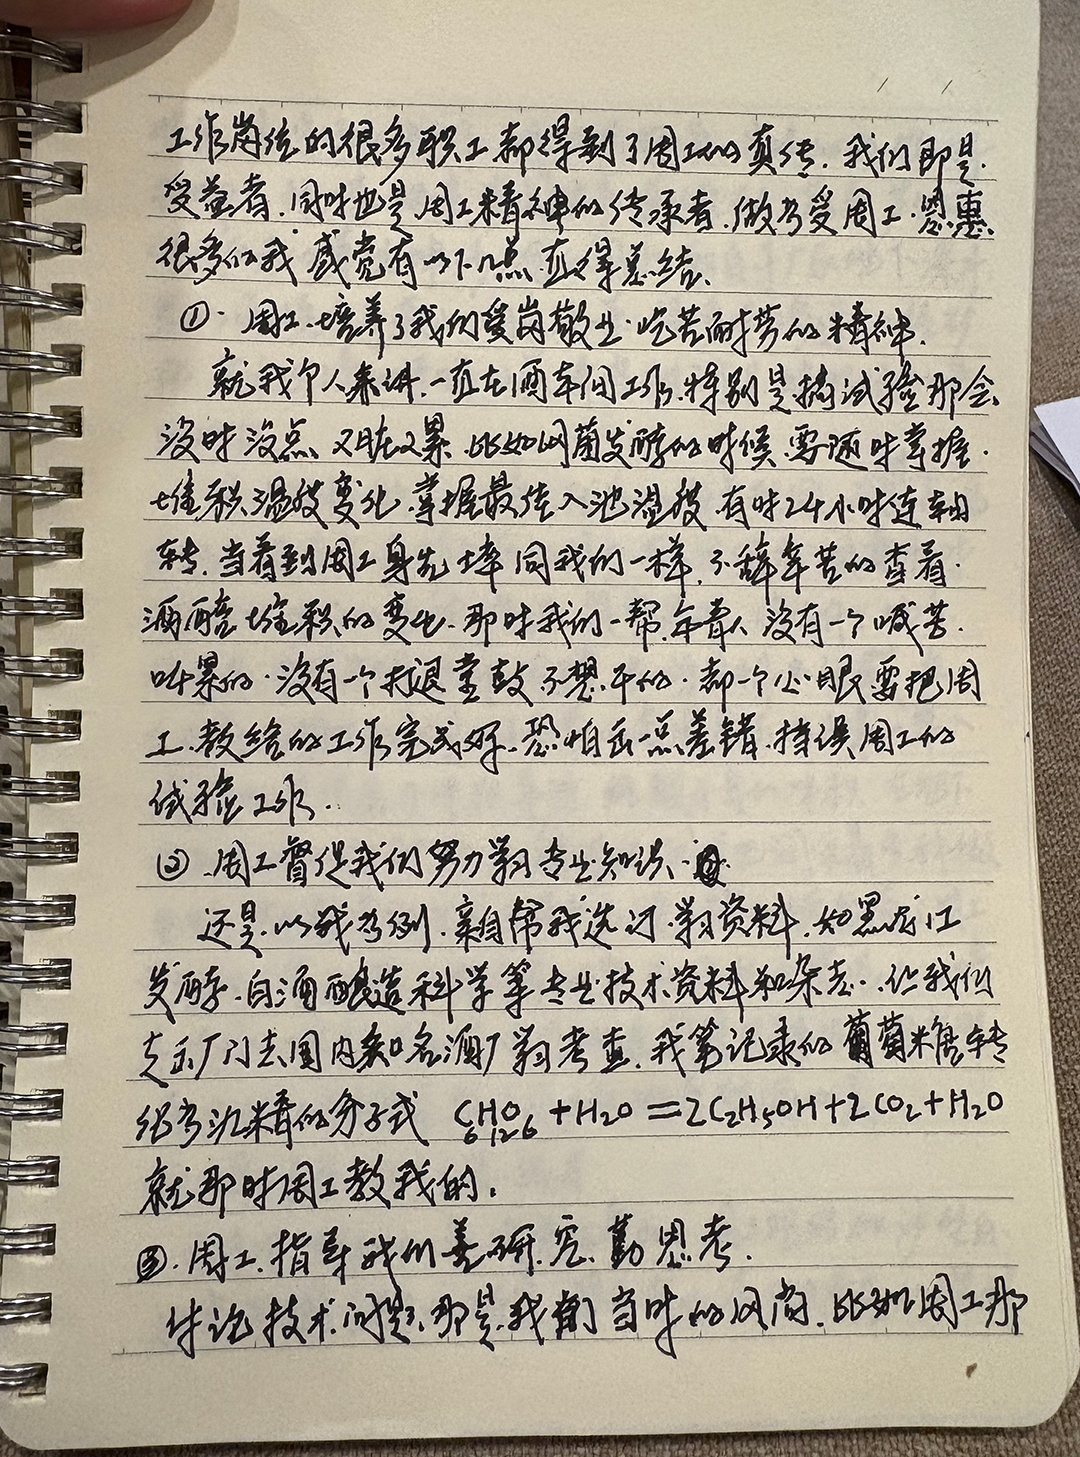 工作岗位的很多职工都得到了周工的真传.我们即是.
受益者.同时也是周工精神的传承者.做为受周工.恩惠
很多的我感觉有以下几点值得总结.
①.周工.培养了我们爱岗敬业.吃苦耐劳的精神.
就我个人来讲.一直在酒车间工作.特别是搞试验那会
没时没点、又脏又累.比如细菌发酵的时候.要逐时掌握.
堆积温度变化.掌握最佳入池温度.有时24小时连轴
转.当看到周工身先士卒同我们一样.不辞辛苦的查看.
酒醅堆积的变化.那时我们一帮年青人没有一个喊苦.
叫累的.没有一个打退堂鼓不想干的.都一个心眼要把周
工.教给的工作完成好.恐怕出一点差错.耽误周工的
试验工作.
②.周工督促我们努力学习专业知识.
还是.以我为例.亲自帮我选订.学习资料.如黑龙江
发酵.白酒酿造科学等专业技术资料和杂志..让我们
走出厂门去国内知名酒厂学习考查.我笔记录的葡萄糖转
化为酒精的分子式 C6H12O6+H2O=2C2H5OH+2CO2+H2O
就那时周工教我的.
③.周工.指导我们善研.究.勤思考.
讨论技术问题.那是我们当时的风尚.比如周工那